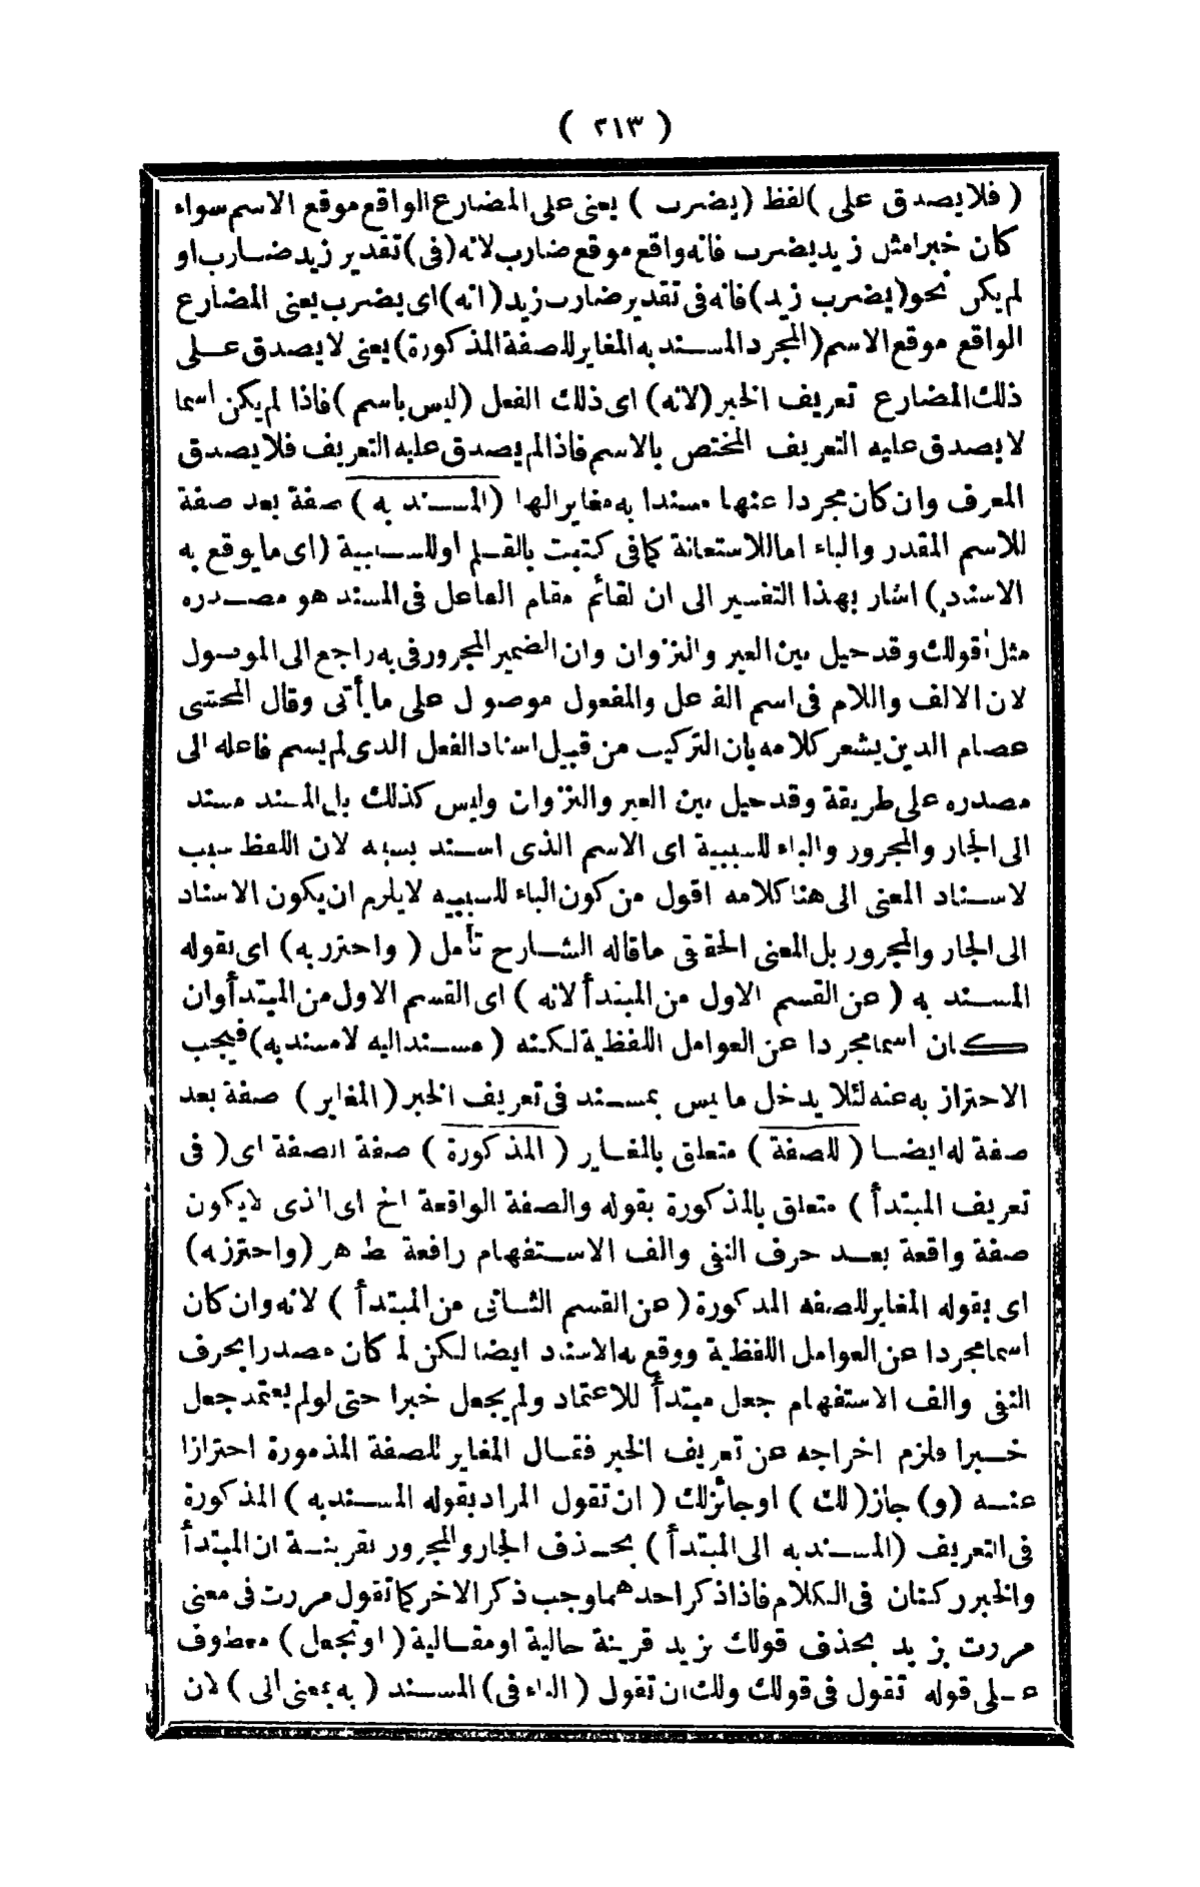 ( ٢١٣ )
( فلا يصدق على ) لفظ ( يضرب ) يعنى على المضارع الواقع موقع الاسم سواء
كان خبرا مثل زيد يضرب فانه واقع موقع ضارب لانه ( فى ) تقدير زيد ضارب او
لم يكن نحو ( يضرب زيد ) فانه فى تقدير ضارب زيد ( انه ) اى يضرب يعنى المضارع
الواقع موقع الاسم ( المجرد المسند به المغاير للصفة المذكورة ) يعنى لا يصدق على
ذلك المضارع تعريف الخبر ( لانه ) اى ذلك الفعل ( ليس باسم ) فاذا لم يكن اسما
لا يصدق عليه التعريف المختص بالاسم فاذا لم يصدق عليه التعريف فلا يصدق
المعرف وان كان مجردا عنها مسندا به مغايرا لها ( المسند به ) صفة بعد صفة
للاسم المقدر والباء اما للاستعانة كما فى كتبت بالقلم او للسببية ( اى ما يوقع به
الاسناد ) اشار بهذا التفسير الى ان لقائم مقام الفاعل فى المسند هو مصدره
مثل قولك وقد حيل بين العير والنزوان وان الضمير المجرور فى به راجع الى الموصول
لان الالف واللام فى اسم الفاعل والمفعول موصول على ما يأتى وقال المحشى
عصام الدين يشعر كلامه بان التركيب من قبيل اسناد الفعل الذى لم يسم فاعله الى
مصدره على طريقة وقد حيل بين العير والنزوان وليس كذلك بل المسند مسند
الى الجار والمجرور والباء للسببية اى الاسم الذى اسند بسببه لان اللفظ سبب
لاسناد المعنى الى هنا كلامه اقول من كون الباء للسببيه لا يلزم ان يكون الاسناد
الى الجار والمجرور بل المعنى الحقيقى ما قاله الشارح تأمل ( واحترز به ) اى بقوله
المسند به ( عن القسم الاول من المبتدأ لانه ) اى القسم الاول من المبتدأ وان
كان اسما مجردا عن العوامل اللفظية لكنه ( مسند اليه لا مسند به ) فيجب
الاحتراز به عنه لئلا يدخل ما ليس بمسند فى تعريف الخبر ( المغاير ) صفة بعد
صفة له ايضا ( للصفة ) متعلق بالمغاير ( المذكورة ) صفة الصفة اى ( فى
تعريف المبتدأ ) متعلق بالمذكورة بقوله والصفة الواقعة الخ اى الذى لا يكون
صفة واقعة بعد حرف النفى والف الاستفهام رافعة ظاهر ( واحترز به )
اى بقوله المغاير للصفه المذكورة ( عن القسم الثانى من المبتدأ ) لانه وان كان
اسما مجردا عن العوامل اللفظية ووقع به الاسناد ايضا لكن لما كان مصدرا بحرف
النفى والف الاستفهام جعل مبتدأ للاعتماد ولم يجعل خبرا حتى لو لم يعتمد جعل
خبرا فلزم اخراجه عن تعريف الخبر فقال المغاير للصفة المذمورة احترازا
عنه ( و ) جاز ( لك ) او جائز لك ( ان تقول المراد بقوله المسند به ) المذكورة
فى التعريف ( المسند به الى المبتدأ ) بحذف الجار والمجرور بقرينة ان المبتدأ
والخبر ركنان فى الكلام فاذا ذكر احدهما وجب ذكر الاخر كما تقول مررت فى معنى
مررت بزيد بحذف قولك بزيد قرينة حالية او مقالية ( او تجعل ) معطوف
على قوله تقول فى قولك ولك ان تقول ( الباء فى ) المسند ( به بمعنى الى ) لان